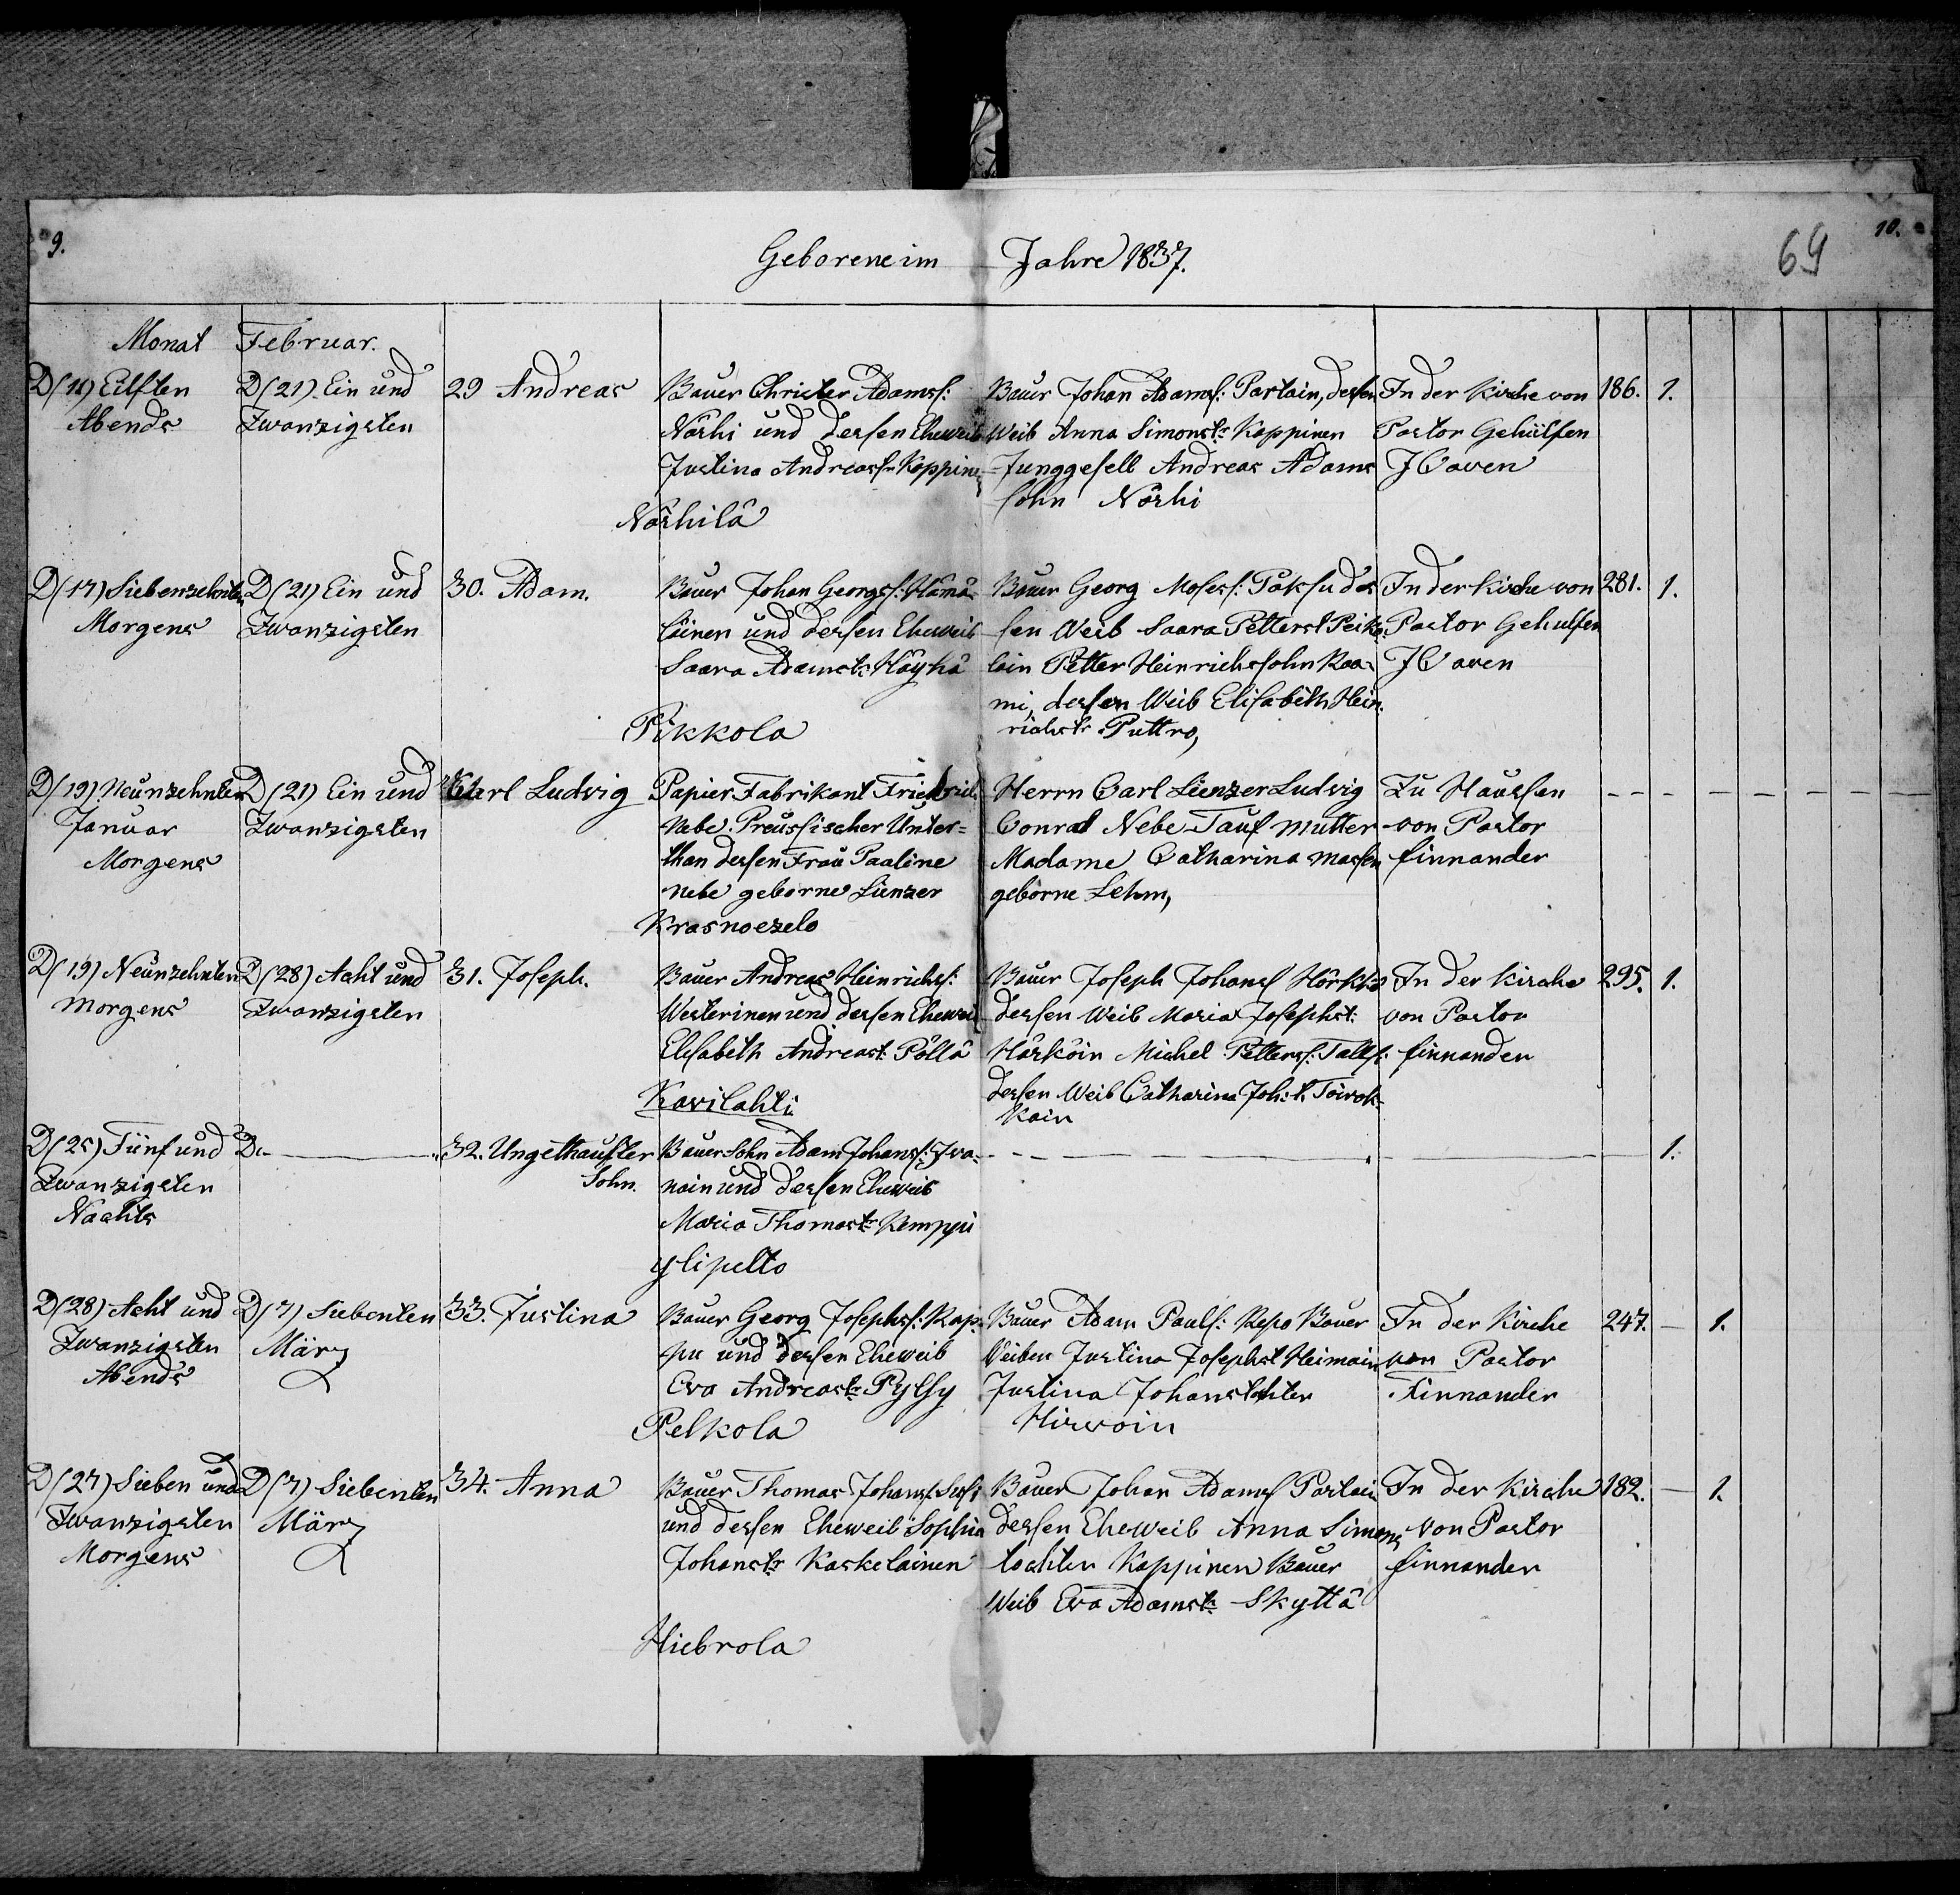 9.
10.
69
Geborene im Jahre 1837.
Monat Februar.
D (11) Eilften
Abends
D (21) Ein und
Zwanzigsten
29 Andreas
Bauer Christer Adamss:
Närhi und dessen Eheweib
Justina Andreasst: Koppine
Närhilä
Bauer Johan Adamss: Partain, dessen
Weib Anna Simonstr Koppinen
Junggesell Andreas Adams
sohn Närhi
In der Kirche von
Pastor Gehülfen
J Caven
186. 1.
D (17) Siebenzehnten
Morgens
D (21) Ein und
Zwanzigsten
30. Adam.
Bauer Johan Georgss: Hämä-
läinen und dessen Eheweib
Saara Adamstr Häyhä
Pikkola
Bauer Georg Mosess: Päksu des
sen Weib Saara Petterst Peiko
lain Petter Heinrichssohn Raa
mi, dessen Weib Elisabeth Hein
richstr Puttro,
In der Kirche von
Pastor Gehulfen
J Caven
281. 1.
D (19) Neunzehnten
Januar
Morgens
D (21) Ein und
Zwanzigsten
Carl Ludvig
Papier Fabrikant Friedrich
Nebe Preussischer Unter=
than dessen Frau Paaline
nebe geborne Lienzer
Krasnoezelo
Herrn Carl Lienzer Ludvig
Conrad Nebe Tauf mutter
Madame Catharina massen
geborne Lehm,
Zu Haussen
von Pastor
finnander
D (19) Neunzehnten
Morgens
D (28) Acht und
Zwanzigsten
31. Joseph.
Bauer Andreas Heinrichs:
Westerinen und dessen Ehewei
Elisabeth Andreast: Pöllä
Kavilahti
Bauer Joseph Johanss Härkkö
dessen Weib Maria Josephst:
Härköin Michel Petterss: Talls:
dessen Weib Catharina Joh: t. Toivok
kain
In der Kirche
von Pastor
finnander
295. 1.
D (25) Fünf und
Zwanzigsten
Nachts
D
32. Ungethaufter
Sohn.
Bauersohn Adam Johanss: Iva-
nain und dessen Eheweib
Maria Thomastr Kemppi
Ylipelto
1.
D (28) Acht und
Zwanzigsten
Abends
D (7) Siebenten
März
33. Justina
Bauer Georg Josephss: Kap-
pu und dessen Eheweib
Eva Andreastr Pylsy
Pelkola
Bauer Adam Pauls: Repo Bauer
Weiben Justina Josephst Heimain
Justina Johanstohter
Hirvoin
In der Kirche
von Pastor
Finnander
247. — 1.
D (27) Sieben und
Zwanzigsten
Morgens
D (7) Siebenten
März
34. Anna
Bauer Thomas Johanss Susi
und dessen Eheweib Sophia
Johanstr Kaskelainen
Hiebrola
Bauer Johan Adamss Partain
dessen Eheweib Anna Simons
tochter Koppinen Bauer
Weib Eva Adamstr Skyttä
In der Kirche
von Pastor
finnander
182. — 1.